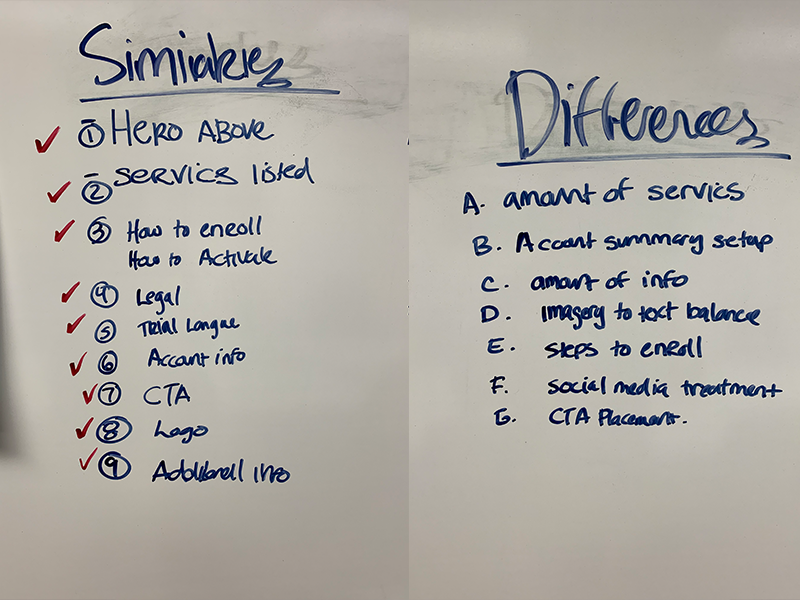 Similarities
① HERO ABOVE
② SERVICS listed
③ How to enroll
How to Activate
④ Legal
⑤ Trial Langue
⑥ Account info
⑦ CTA
⑧ Logo
⑨ Additional info
Differences
A. amount of servics
B. Account summary setup
C. amount of info
D. Imagery to text balance
E. steps to enroll
F. social media treatment
G. CTA Placement.